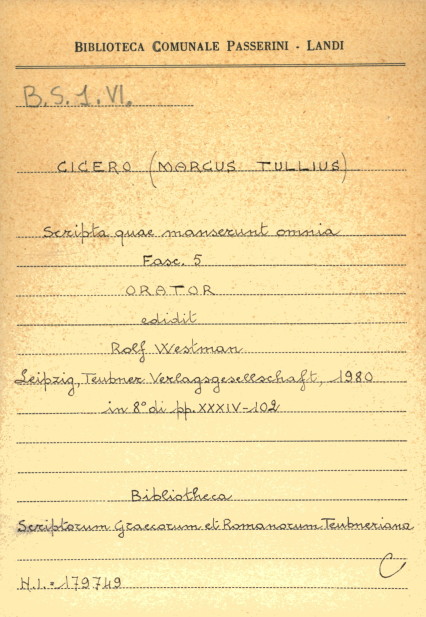 BIBLIOTECA COMUNALE PASSERINI - LANDI
B.S.1.VI.
CICERO (MARCUS TULLIUS)
Scripta quae manserunt omnia
Fasc. 5
ORATOR
edidit
Rolf Westman
Leipzig, Teubner Verlagsgesellschaft, 1980
in 8° di pp. XXXIV-102
Bibliotheca
Scriptorum Graecorum et Romanorum Teubneriana
C
N.I. = 179749